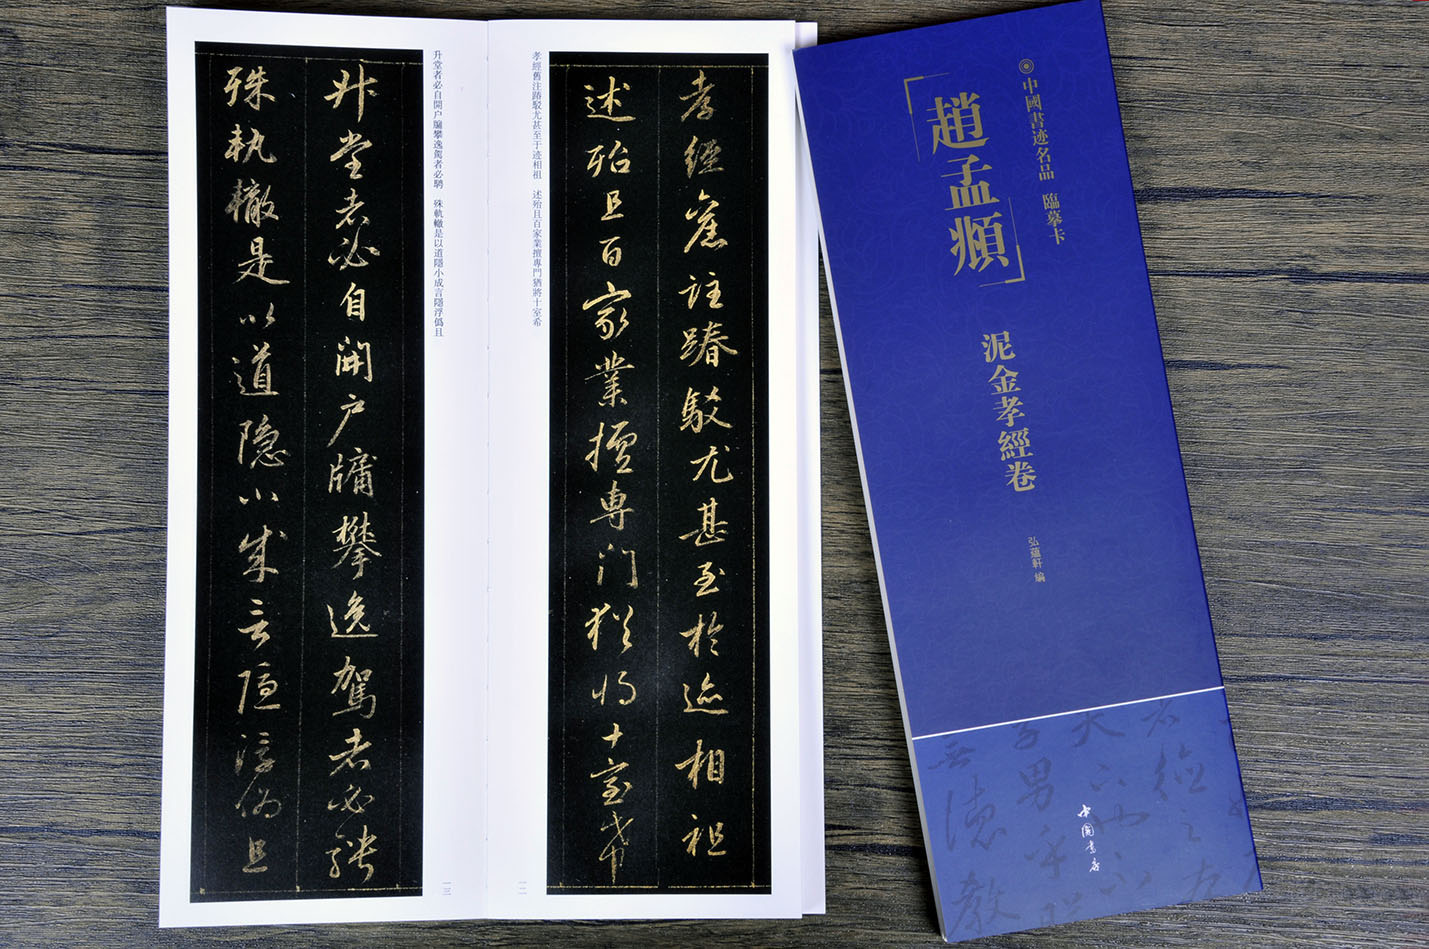 中國書迹名品 臨摹卡
趙孟頫
泥金孝經卷
弘蘊軒 編
中國書店
孝經舊註踳駮尤甚至於迹相祖
述殆且百家業擅專門猶將十室希
孝經舊注踳駁尤甚至于迹相祖 述殆且百家業擅專門猶將十室希
一二
升堂者必自開户牖攀逸駕者必騁
殊軌轍是以道隱小成言隱浮偽且
升堂者必自開户牖攀逸駕者必騁 殊軌轍是以道隱小成言隱浮僞且
一三